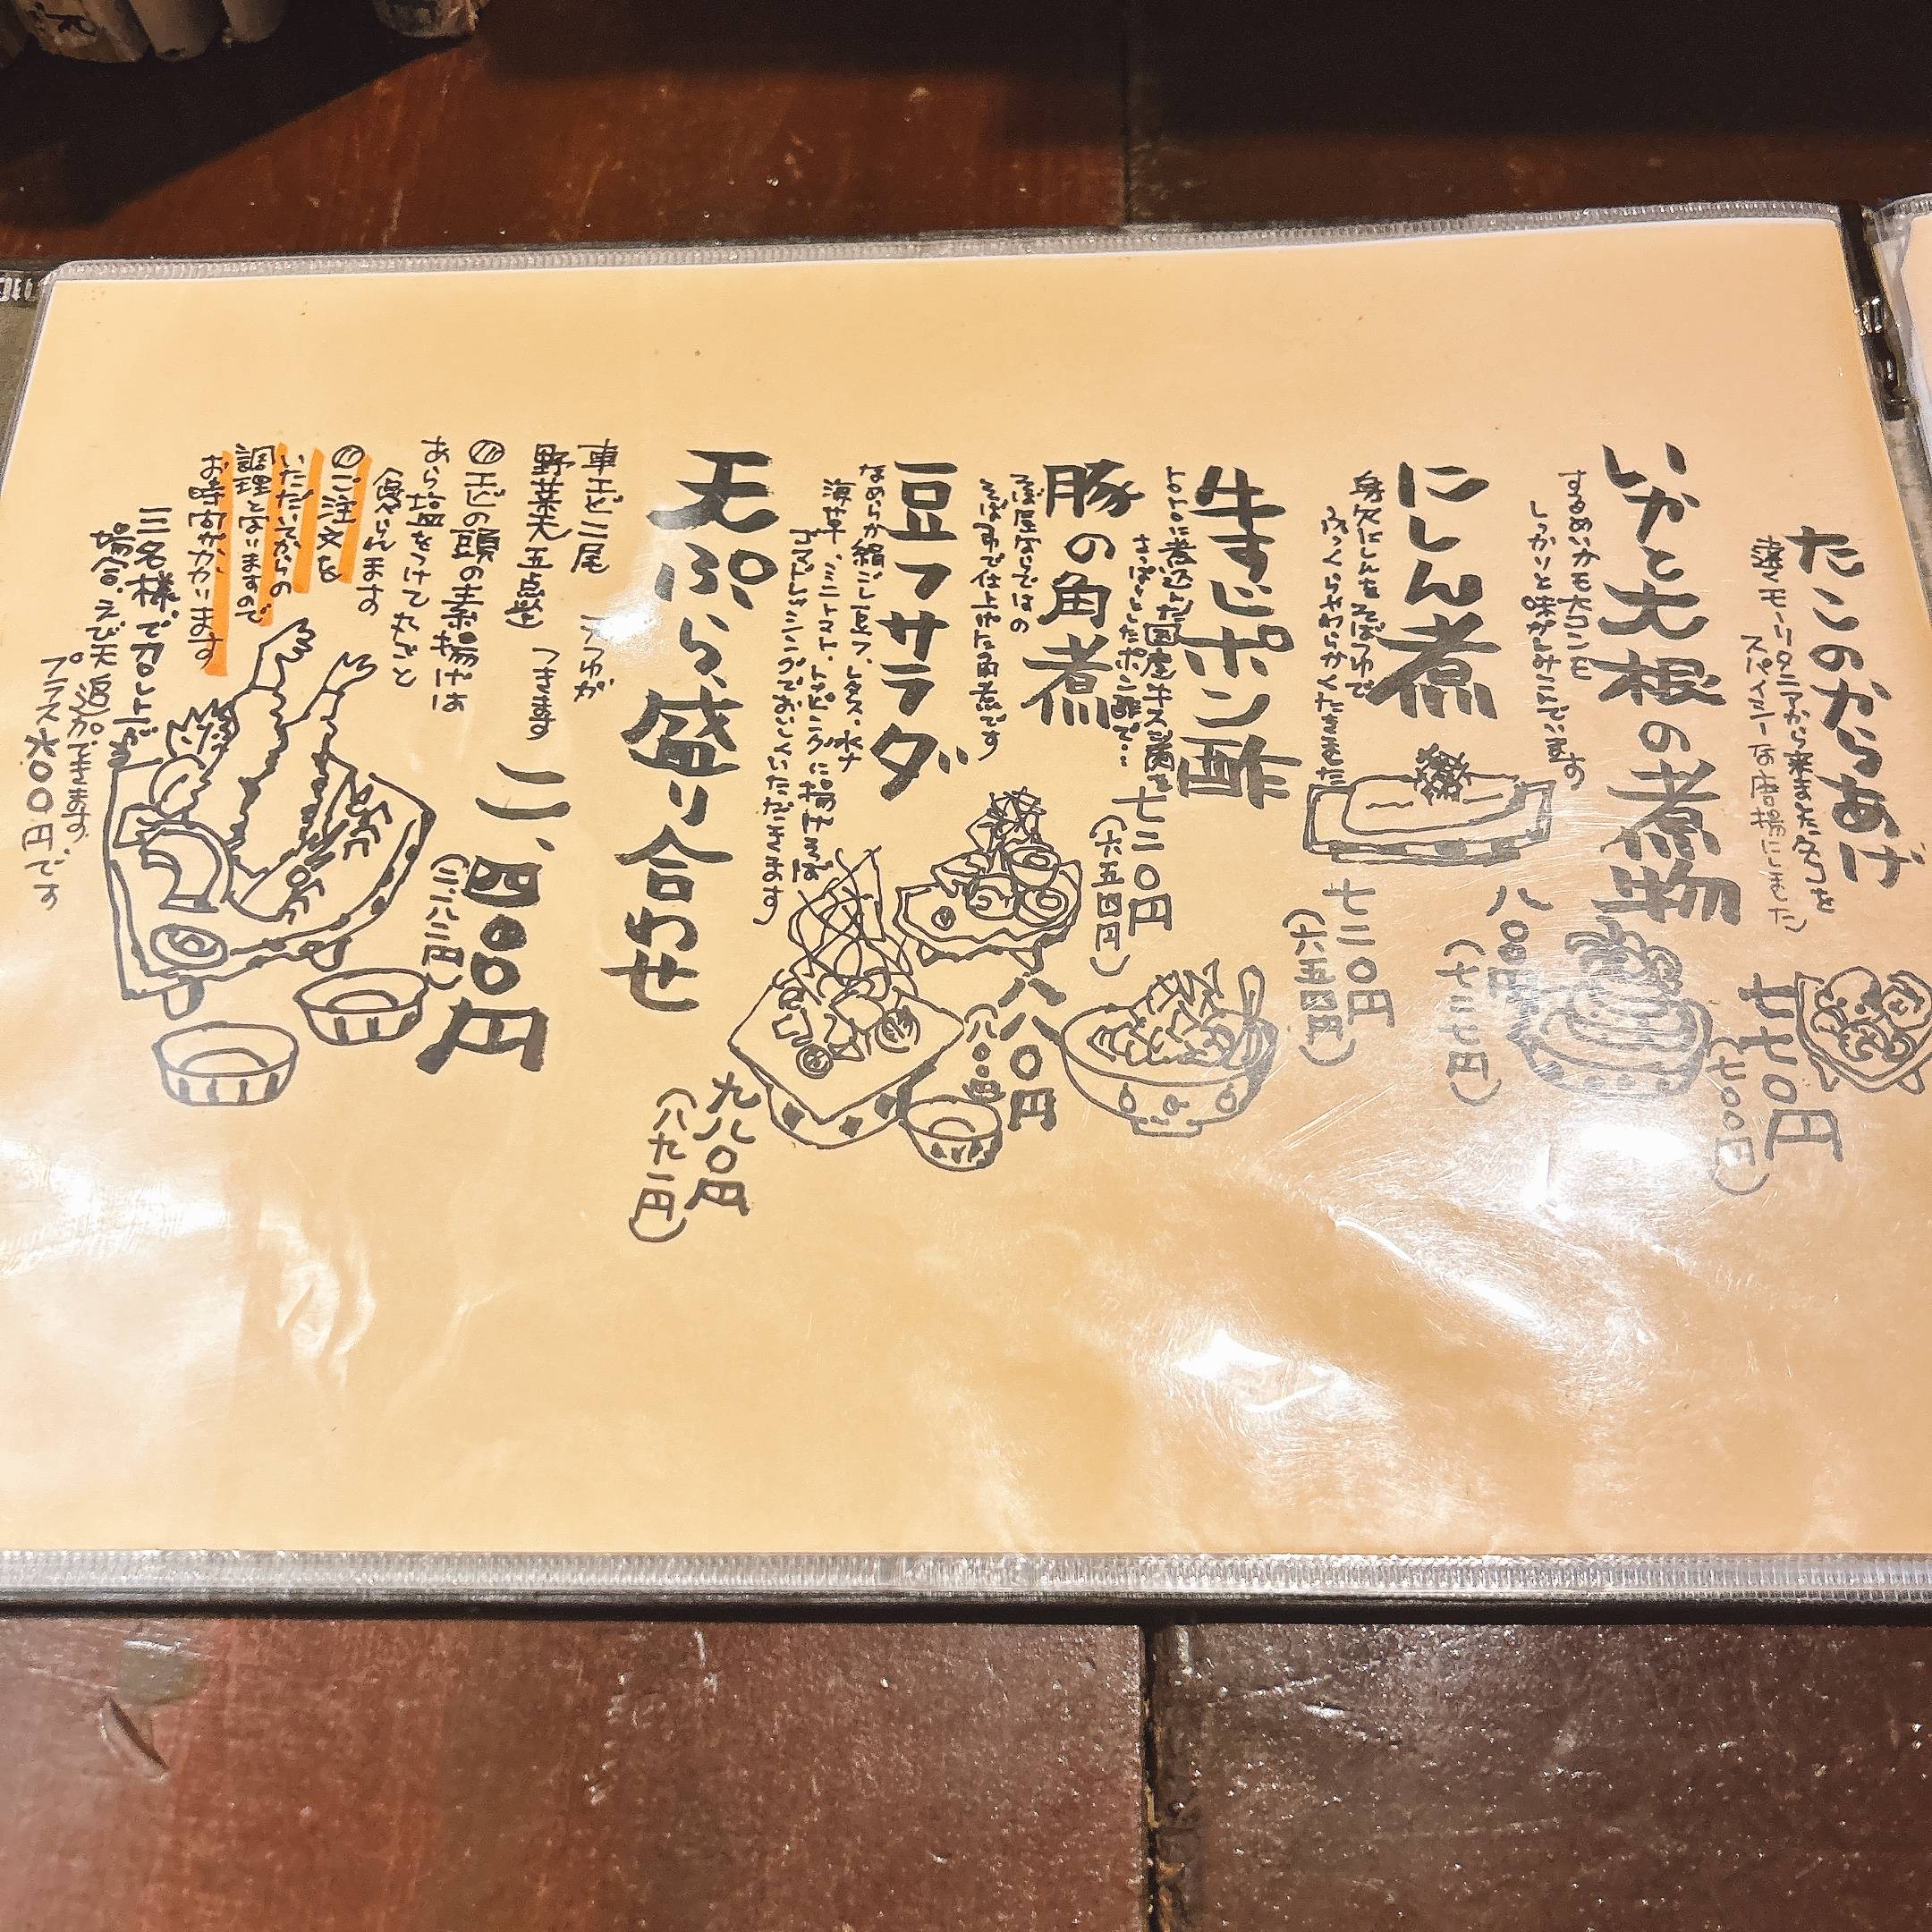 たこのからあげ
遠くモーリタニアから来ましたタコを
スパイシーな唐揚にしました
七七〇円
(七〇〇円)
いかと大根の煮物
するめいかモ大コンモ
しっかりと味がしみこんでいます
八〇〇円
(七二七円)
にしん煮
身欠にしんをそばつゆで
ふっくらやわらかくたきました
七二〇円
(六五四円)
牛すじポン酢
トロトロに煮込んだ国産牛スジ肉を
さっぱりとしたポン酢で…
七二〇円
(六五四円)
豚の角煮
そば屋ならではの
そばつゆで仕上げた角煮です
八八〇円
(八〇〇円)
豆フサラダ
なめらか絹ごし豆フ、レタス・水ナ
海草・ミニトマト、トッピングに揚げそば
ゴマドレッシングでおいしくいただきます
九八〇円
(八九一円)
天ぷら盛り合わせ
車エビ二尾 つゆが
野菜天五点と つきます
二、四〇〇円
エビの頭の素揚げは
あら塩をつけて丸ごと
食べられます
ご注文を
いただいてからの
調理となりますので
お時間かかります
三名様でカレー
場合、えび天追加できます。
プラス六〇〇円です